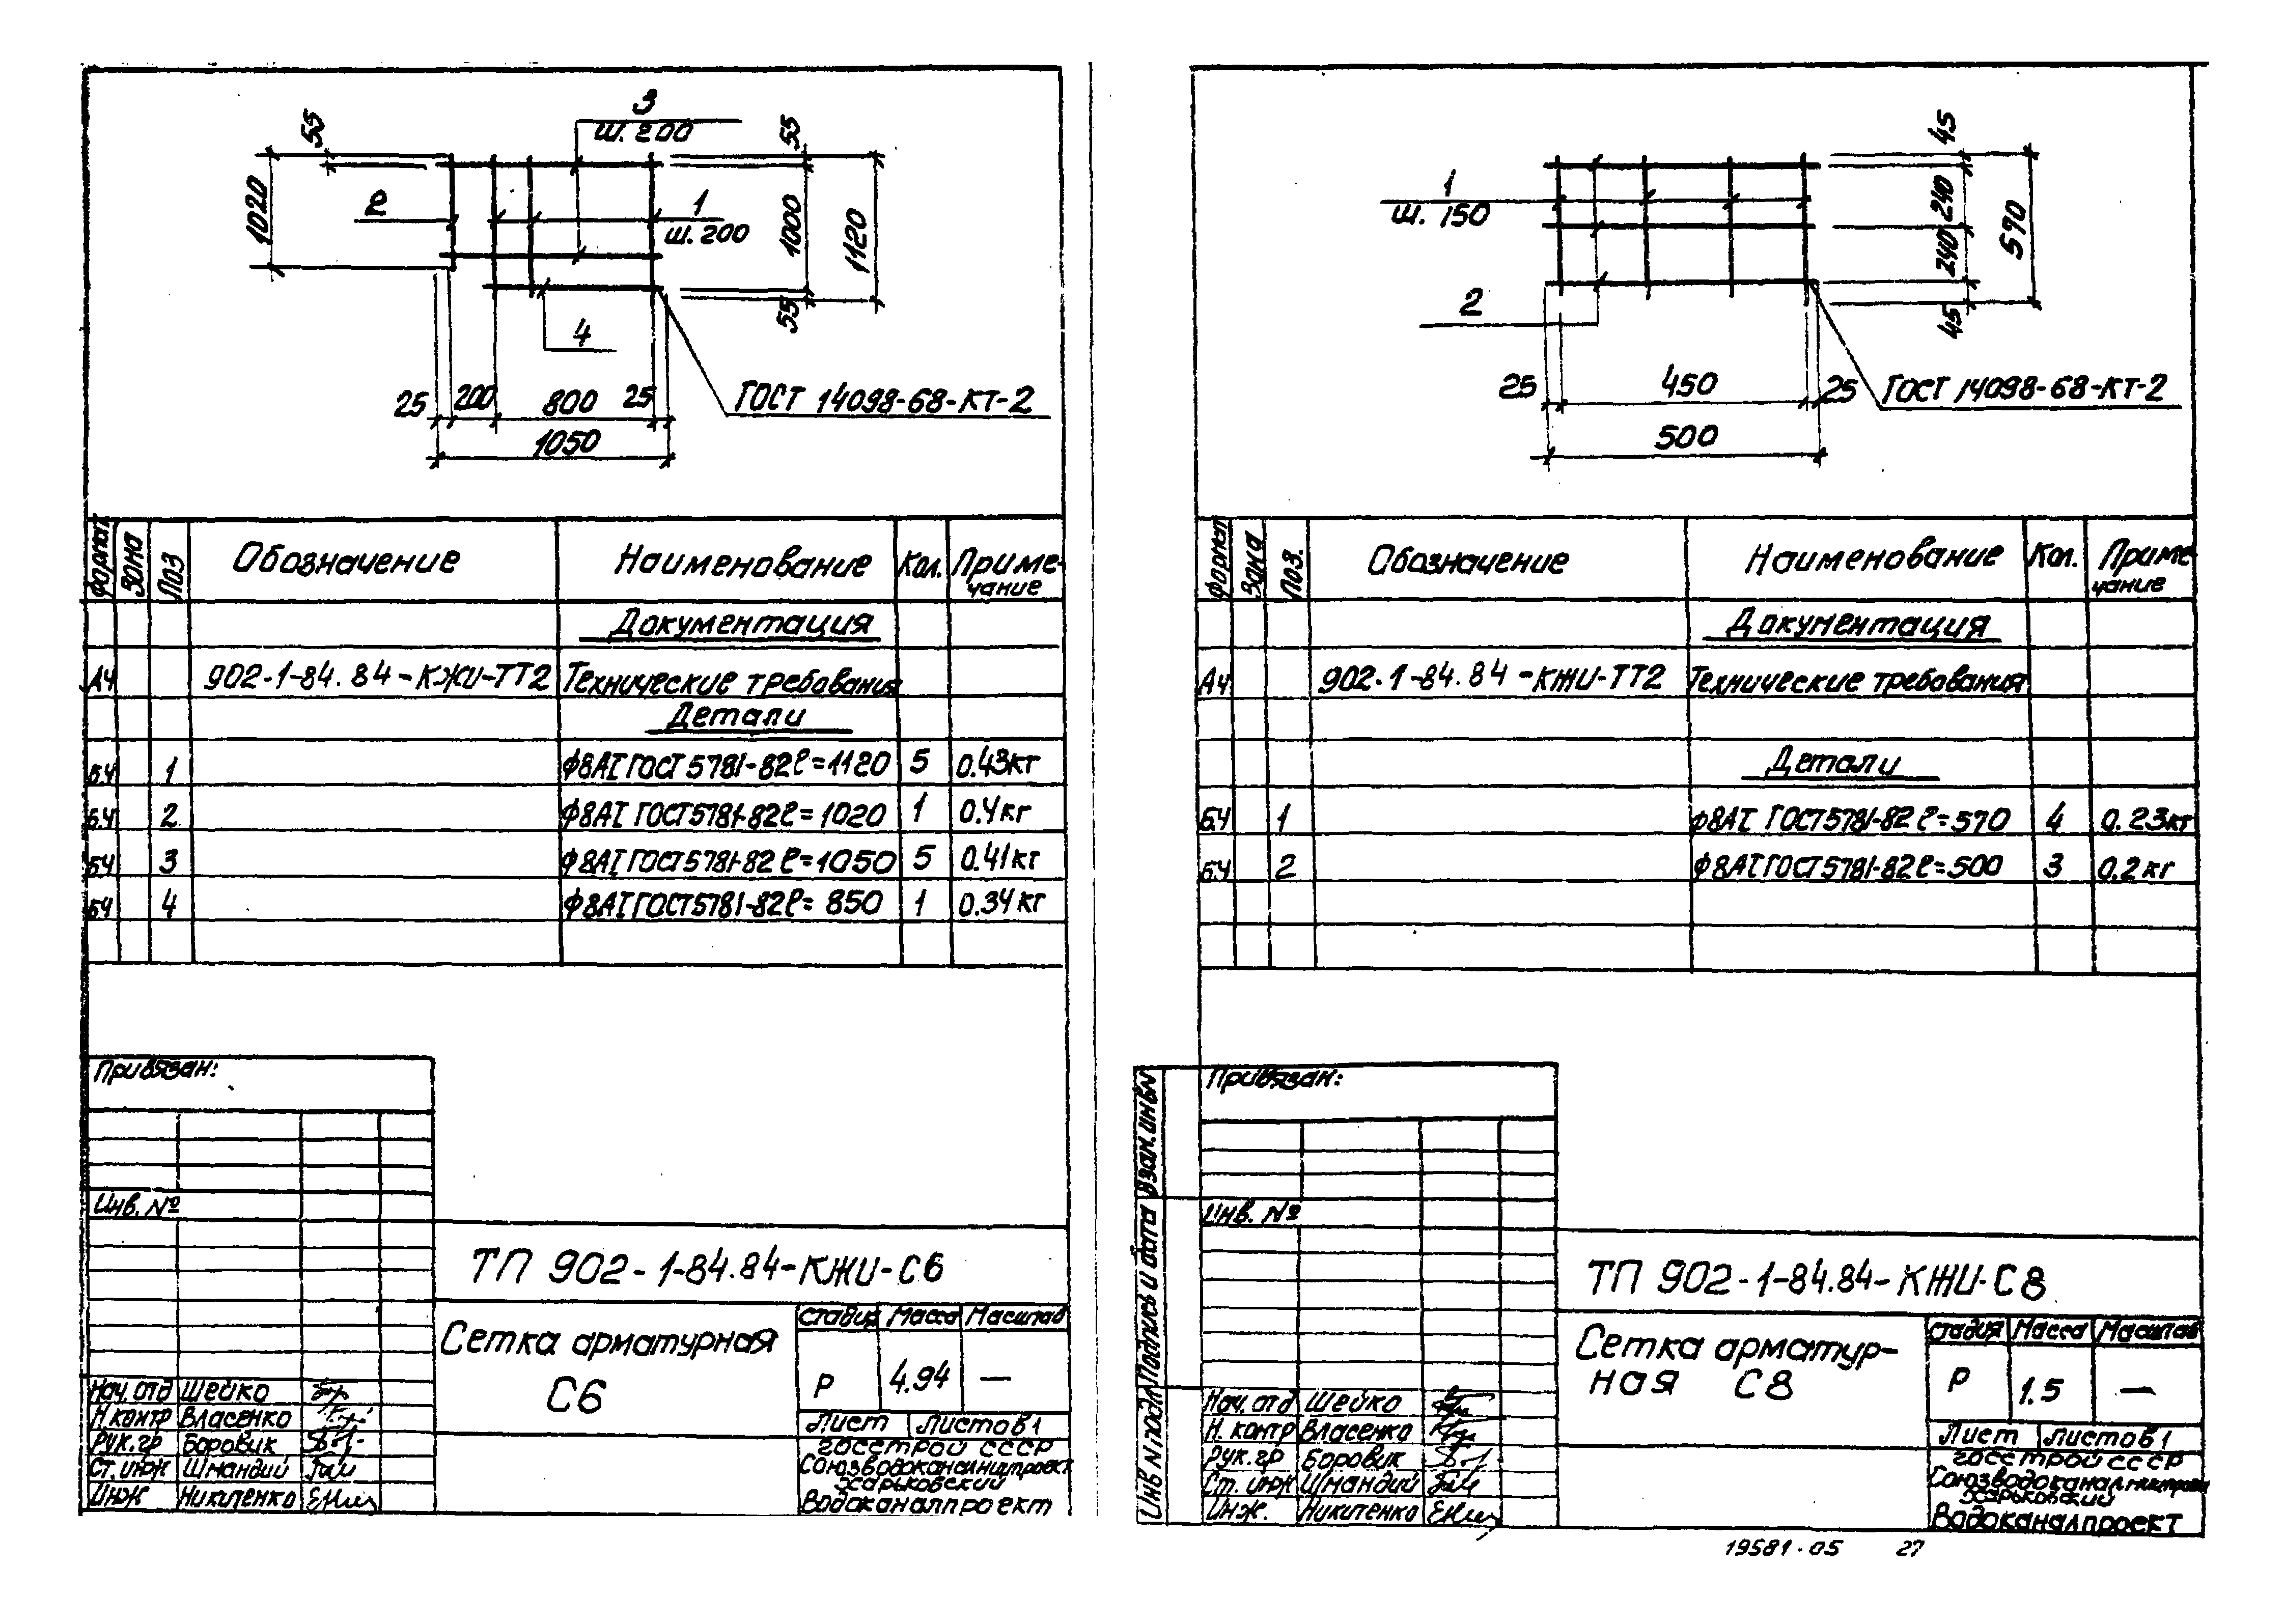 3
ш. 200
55
1020
2
1
ш. 200
55
1000
1120
55
4
25 200 800 25
1050
ГОСТ 14098-68-КТ-2
Формат Зона Поз Обозначение Наименование Кол. Приме-
чание
Документация
А4 902-1-84.84-КЖИ-ТТ2 Технические требования
Детали
Б.Ч 1 Ф8АI ГОСТ 5781-82 ℓ=1120 5 0.43кг
Б.Ч 2 Ф8АI ГОСТ 5781-82 ℓ=1020 1 0.4кг
Б.Ч 3 Ф8АI ГОСТ 5781-82 ℓ=1050 5 0.41кг
Б.Ч 4 Ф8АI ГОСТ 5781-82 ℓ=850 1 0.34кг
Привязан:
Инв. №
ТП 902-1-84.84-КЖИ-С6
Сетка арматурная
С6
Стадия Масса Масштаб
Р 4.94 —
Лист Листов 1
Госстрой СССР
Союзводоканалниипроект
Харьковский
Водоканалпроект
Нач. отд Шейко
Н.контр Власенко
Рук.гр Боровик
Ст. инж Шмандий
Инж Никитенко
1
ш. 150
2
45
240
240
45
570
25 450 25
500
ГОСТ 14098-68-КТ-2
Формат Зона Поз. Обозначение Наименование Кол. Приме
чание
Документация
А4 902-1-84.84-КЖИ-ТТ2 Технические требования
Детали
Б.Ч 1 Ф8АI ГОСТ 5781-82 ℓ=570 4 0.23кг
Б.Ч 2 Ф8АI ГОСТ 5781-82 ℓ=500 3 0.2кг
Привязан:
Инв. №
Взам. инв №
Подпись и дата
Инв № подл
ТП 902-1-84.84-КЖИ-С8
Сетка арматур-
ная С8
Стадия Масса Масштаб
Р 1.5 —
Лист Листов 1
Госстрой СССР
Союзводоканалниипроект
Харьковский
Водоканалпроект
Нач. отд Шейко
Н. контр Власенко
Рук. гр Боровик
Ст. инж Шмандий
Инж. Никитенко
19581-05 27